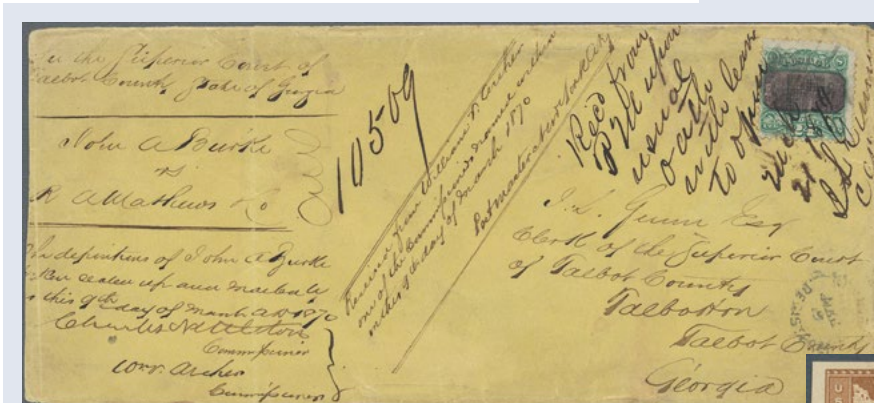 In the Superior Court of
Talbot County State of Georgia
John A Burke
vs
R A Mathews & Co
The depositions of John A Burke
sealed up and
this 9th day of March AD 1870
Charles
Commissioner
Wm. Archer
Commissioner
10509
Received from William P. Archer
one of the Commissioners named within
on this 9th day of March 1870
Postmaster at New York City
Recd from
P M upon
usual
oath
with leave
to open
J. L. Gunn Esq
Clerk of the Superior Court
of Talbot County
Talbotton
Talbot County
Georgia
MAR
9
U S